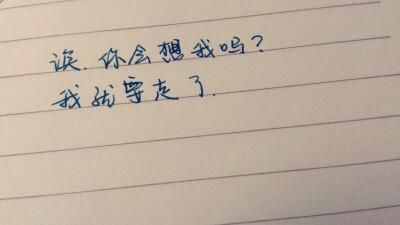 诶.你会想我吗?
我就要走了.